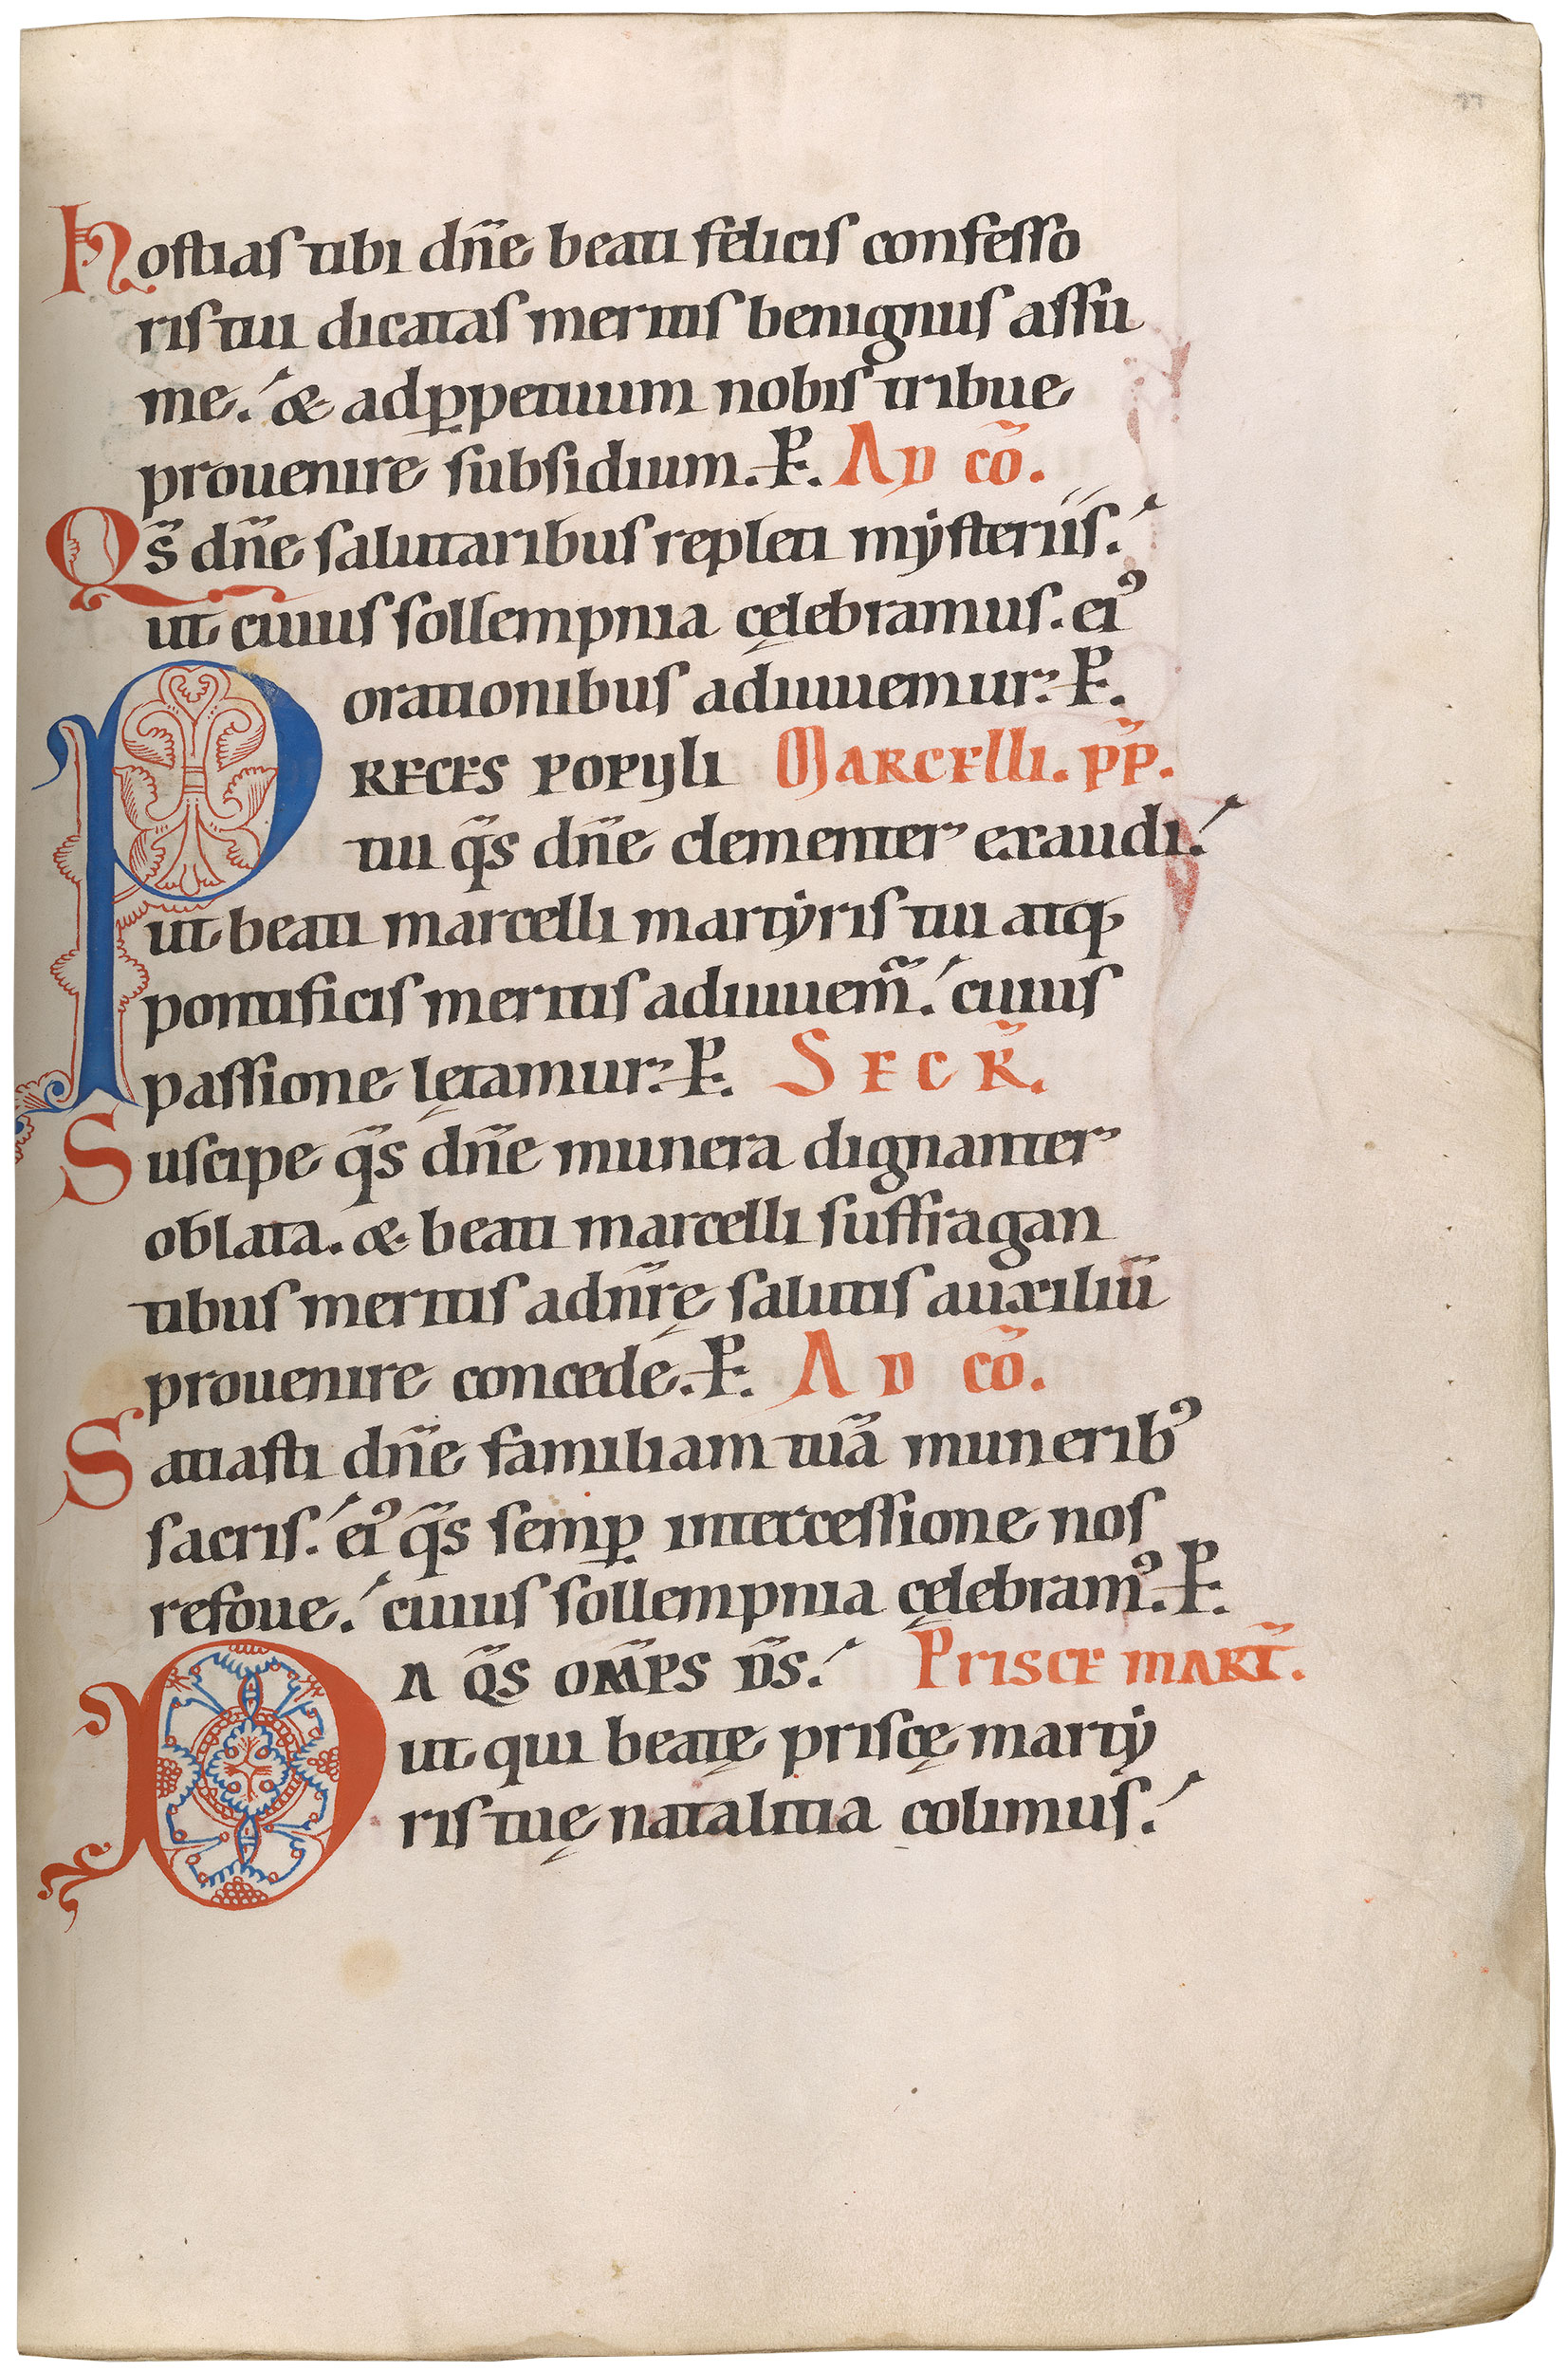 Hostias tibi dñe beati felicis confesso
ris tui dicatas meritis benignus assu
me. & adp̱petuum nobis tribue
prouenire subsidium. P. AD cõ.
Qs̃ dñe salutaribus repleti mẏsteriis.
ut cuius sollempnia cęlebramus. ei⁹
orationibus adiuuemur: P.
PRECES POPULI MARCELLI. P̃P.
tui q̃s dñe clementer exaudi.
ut beati marcelli martẏris tui atq;
pontificis meritis adiuuem̃. cuius
passione lętamur: P. SECR̃.
Suscipe q̃s dñe munera dignanter
oblata. & beati marcelli suffragan
tibus meritis adnr̃ę salutis auxiliũ
prouenire concede. P. AD cõ.
Satiasti dñe familiam tuã munerib⁹
sacris. ei⁹ q̃s semp̱ intercessione nos
refoue. cuius sollempnia cęlebram⁹. P.
DA Q̃S OM̃PS D̃S. PRISCE MART̃.
ut qui beatę priscę martẏ
ris tuę natalitia colimus.